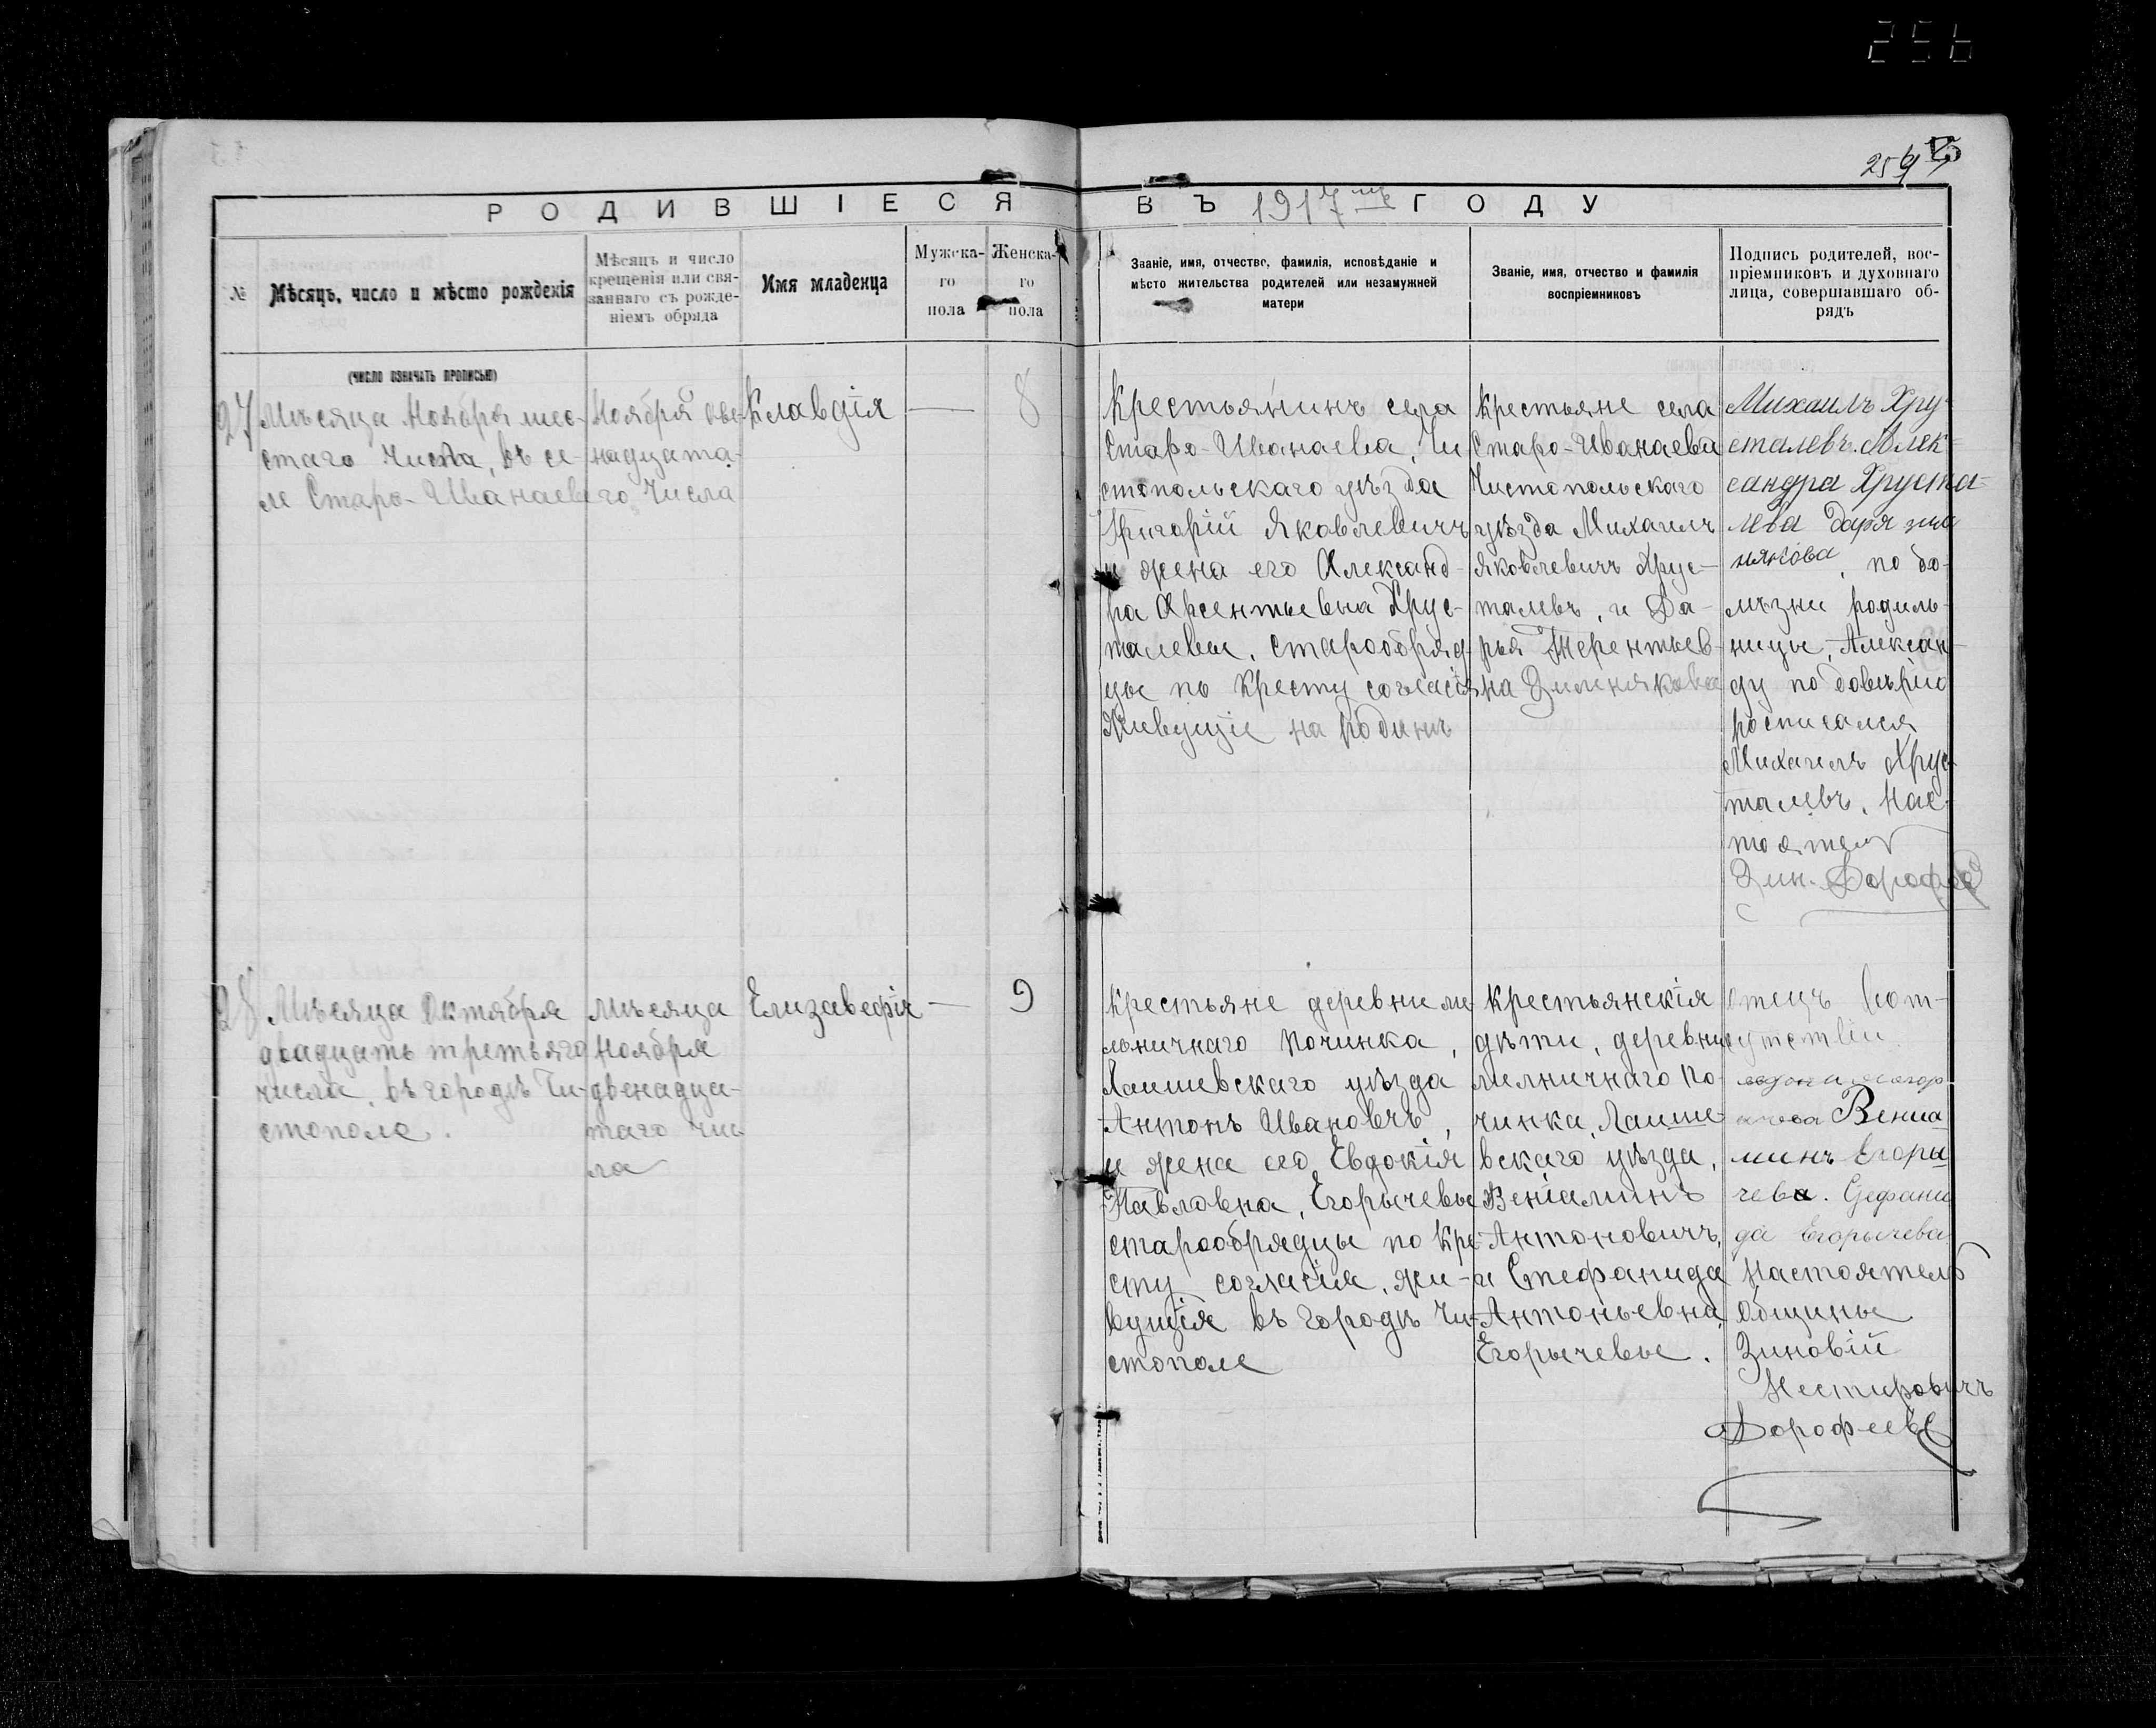 256
259
РОДИВШІЕСЯ ВЪ 1917 мъ ГОДУ
№
Мѣсяцъ, число и мѣсто рожденія
(число означать прописью)
Мѣсяцъ и число
крещенія или свя-
заннаго съ рожде-
ніемъ обряда
Имя младенца
Мужска-
го
пола
Женска-
го
пола
Званіе, имя, отчество, фамилія, исповѣданіе и
мѣсто жительства родителей или незамужней
матери
Званіе, имя, отчество и фамилія
воспріемниковъ
Подпись родителей, вос-
пріемниковъ и духовнаго
лица, совершавшаго об-
рядъ
27
Мѣсяца Ноября шес-
стаго Числа, въ се-
ле Старо-Иванаеве
Ноября две-
надцата-
го Числа
Клавдія
—
8
Крестьянинъ села
Старо-Иванаева, Чи
стопольскаго уѣзда
Григорій Яковлевичъ
и жена его Александ-
ра Арсентьевна Хрус-
талевы, старообряд-
цы по Кресту согласія
Живущіе на родинѣ
Крестьяне села
Старо-Иванаева
Чистопольскаго
уѣзда Михаилъ
Яковлевичъ Хрус-
талевъ, и Да-
рья Терентьев-
на Зимнякова
Михаилъ Хру
сталевъ. Алек-
сандра Хруста-
лева Даря зим
някова, по бо-
лѣзни родиль-
ницы, Алексан-
ду по довѣрію
росписался
Михаилъ Хрус-
талевъ. Нас-
тоятель
Зин. Дорофѣ
28
Мѣсяца Октября
двадцать третьяго
числа, въ городѣ Чи-
стополе.
Мѣсяца
Ноября
двенадца-
таго чис
ла
Елизавефія
—
9
Крестьяне деревни ме
льничнаго Починка,
Лаишевскаго уѣзда
Антонъ Ивановчъ,
и жена его, Евдокія
Павловна, Егорычевы
старообрядцы по Кре-
сту согласія, жи-
вущія въ городѣ Чи-
стополе
Крестьянскія
дѣти, деревни
мелничнаго По-
чинка, Лаише-
вскаго уѣзда,
Веніаминъ
Антоновичъ,
и Стефанида
Антоньевна
Егорычевые.
Отецъ вот-
сутствіи
Вениа
минъ Егоры
чева. Сефани
да Егорычева
Настоятель
Общины
Зиновій
Нестировичъ
Дорофеевъ